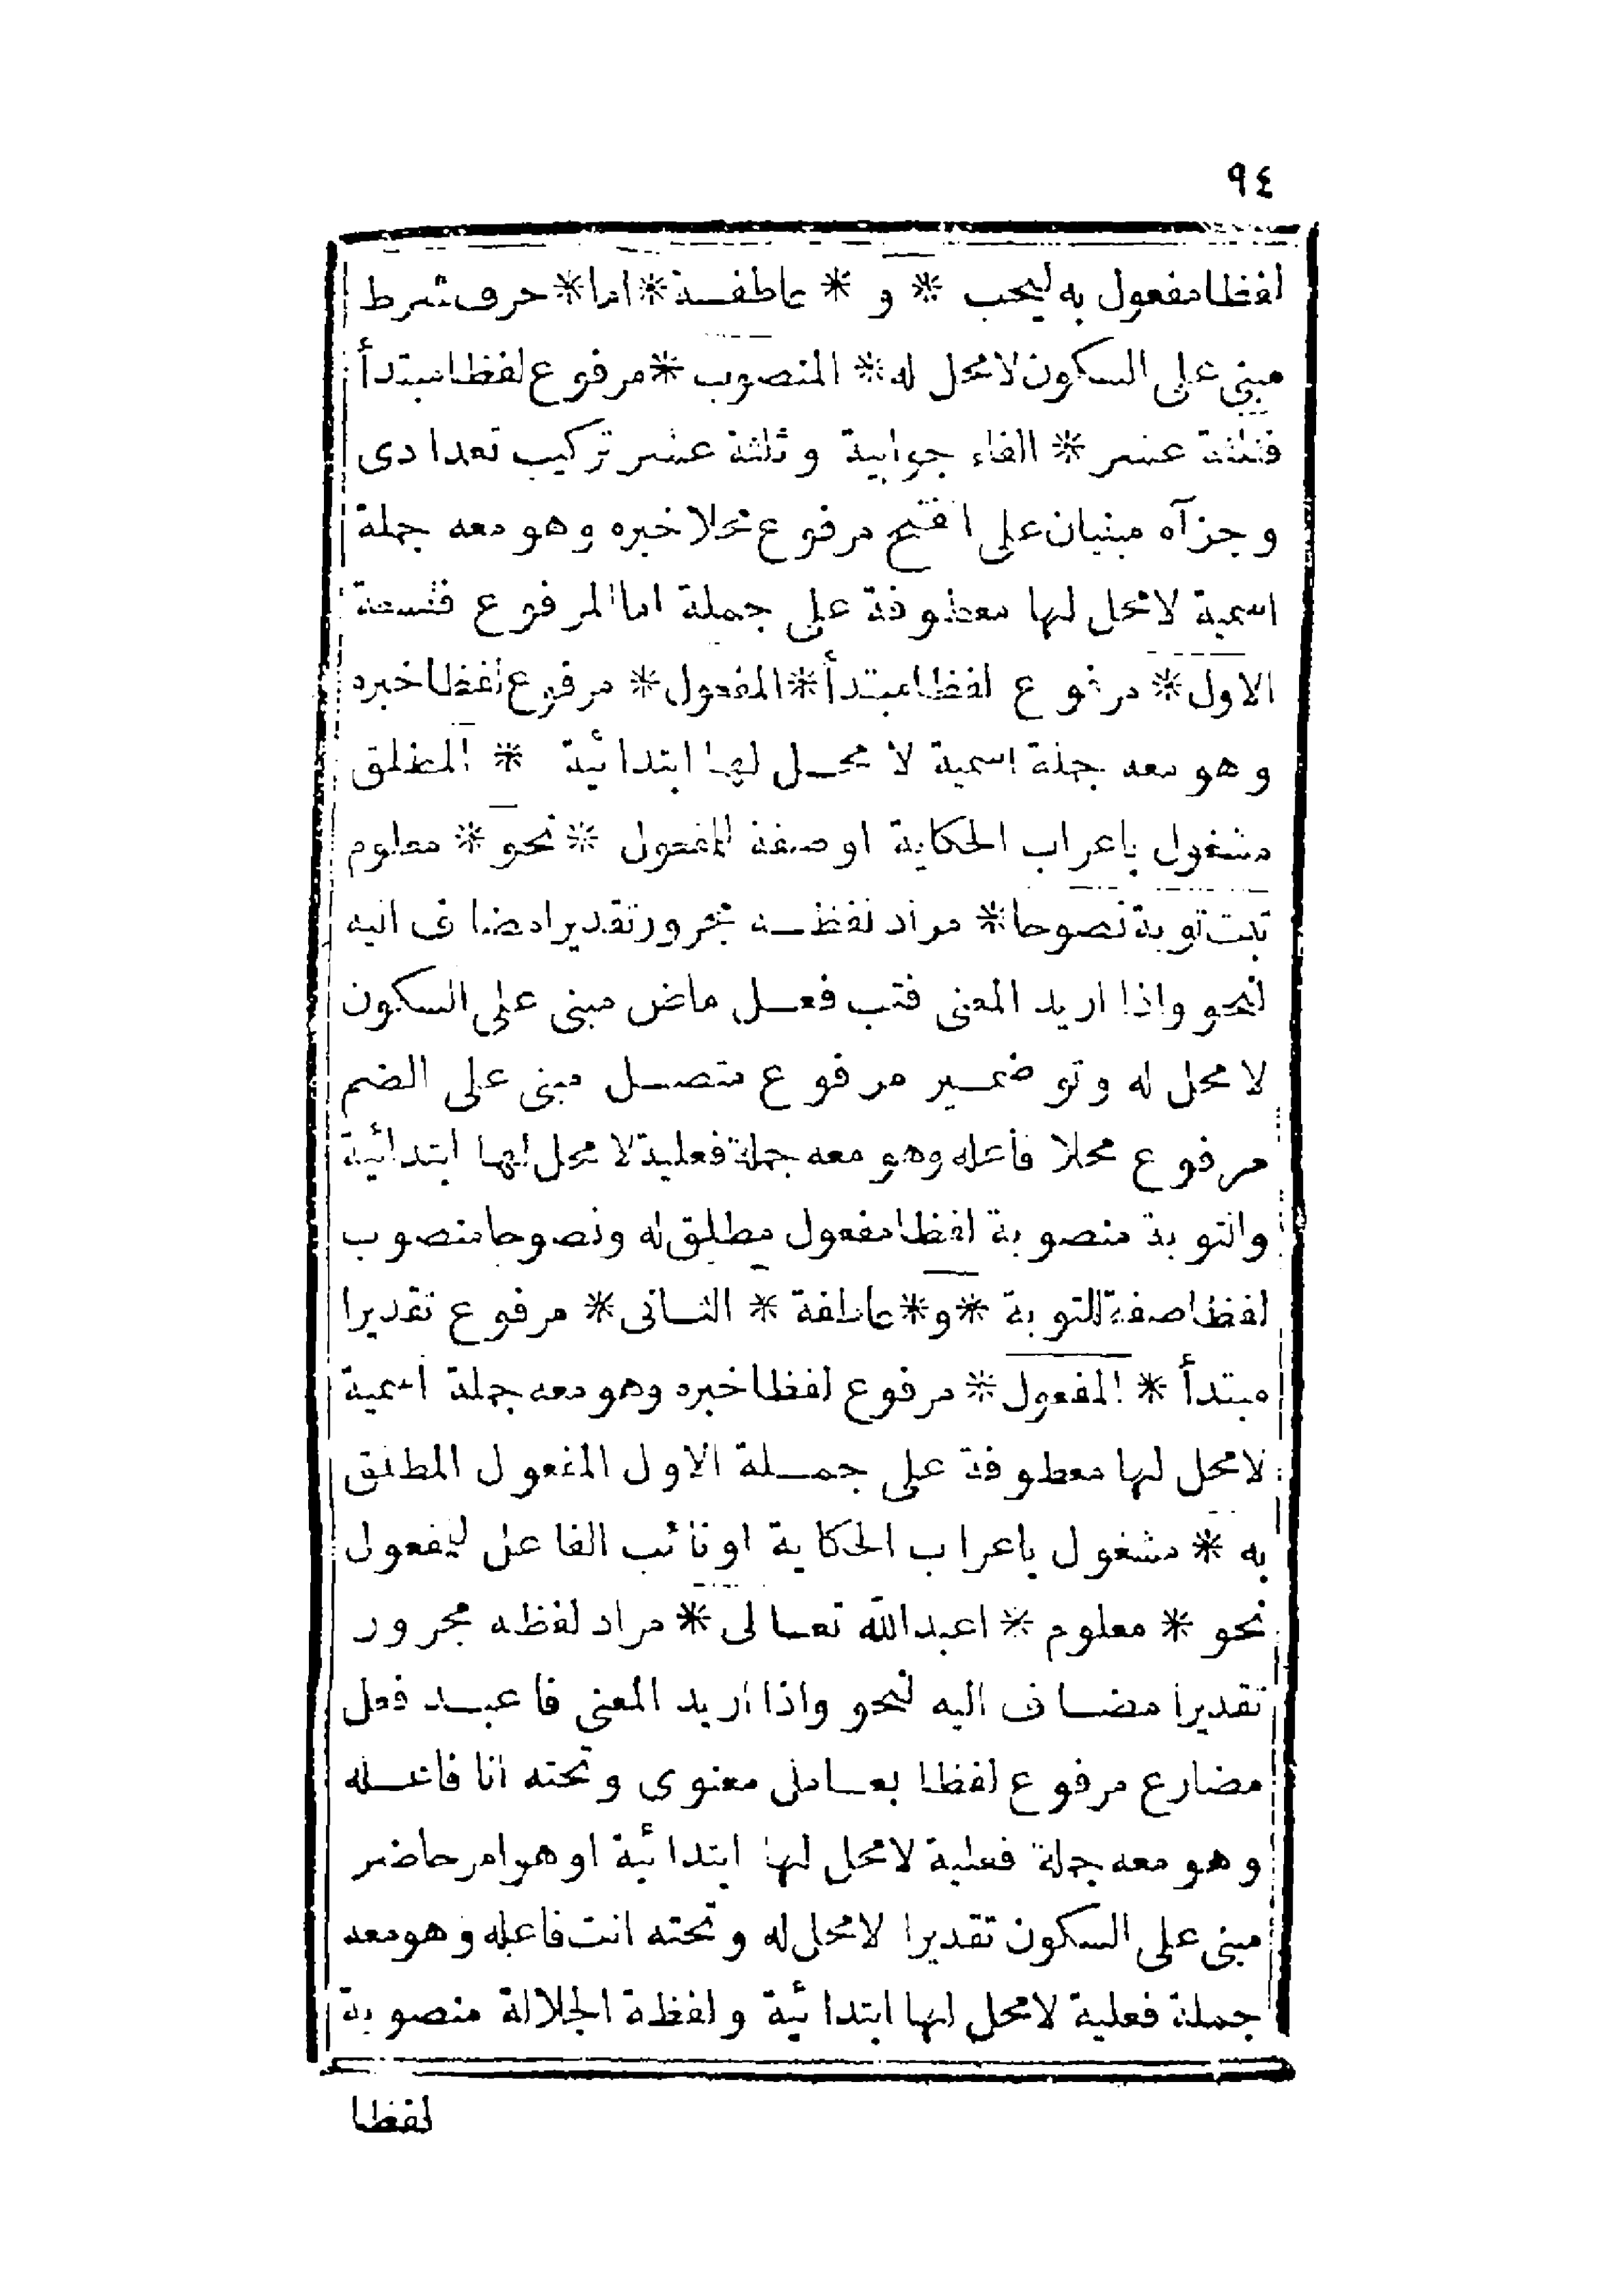 ٩٤
لفظا مفعول به ليحب * و * عاطفة * اما * حرف شرط
مبنى على السكون لا محل له * المنصوب * مرفوع لفظا مبتدأ
فثلثة عشر * الفاء جوابية وثلثة عشر تركيب تعدادى
وجزآه مبنيان على الفتح مرفوع محلا خبره وهو معه جملة
اسمية لا محل لها معطوفة على جملة اما المرفوع فتسعة
الاول * مرفوع لفظا مبتدأ * المفعول * مرفوع لفظا خبره
وهو معه جملة اسمية لا محل لها ابتدائية * المطلق
مشغول باعراب الحكاية او صفة للمفعول * نحو * معلوم
تبت توبة نصوحا * مراد لفظه مجرور تقديرا مضاف اليه
لنحو واذا اريد المعنى فتب فعل ماض مبنى على السكون
لا محل له وتو ضمير مرفوع متصل مبنى على الضم
مرفوع محلا فاعله وهو معه جملة فعلية لا محل لها ابتدائية
والتوبة منصوبة لفظا مفعول مطلق له ونصوحا منصوب
لفظا صفة للتوبة * و * عاطفة * الثانى * مرفوع تقديرا
مبتدأ * المفعول * مرفوع لفظا خبره وهو معه جملة اسمية
لا محل لها معطوفة على جملة الاول المفعول المطلق
به * مشغول باعراب الحكاية او نائب الفاعل للمفعول
نحو * معلوم * اعبد الله تعالى * مراد لفظه مجرور
تقديرا مضاف اليه لنحو واذا اريد المعنى فاعبد فعل
مضارع مرفوع لفظا بعامل معنوى وتحته انا فاعله
وهو معه جملة فعلية لا محل لها ابتدائية او هو امر حاضر
مبنى على السكون تقديرا لا محل له وتحته انت فاعله وهو معه
جملة فعلية لا محل لها ابتدائية ولفظة الجلالة منصوبة
لفظا